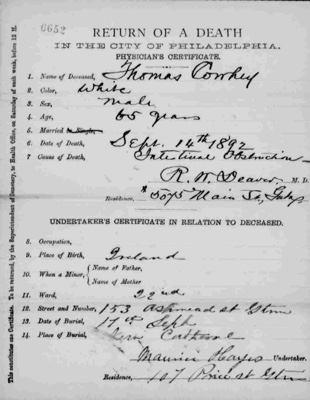 6652
RETURN OF A DEATH
IN THE CITY OF PHILADELPHIA.
PHYSICIAN'S CERTIFICATE.
1. Name of Deceased, Thomas Cowhey
2. Color, White
3. Sex, Male
4. Age, 65 years
5. Married or Single,
6. Date of Death, Sept. 14th 1892
7. Cause of Death, Intestinal Obstruction
R. W. Deaver, M. D.
Residence, 5075 Main St,
UNDERTAKER'S CERTIFICATE IN RELATION TO DECEASED.
8. Occupation,
9. Place of Birth, Ireland
10. When a Minor, { Name of Father,
Name of Mother
11. Ward, 22nd
12. Street and Number, 153 Ashmead st Gtn
13. Date of Burial, 17th Sept
14. Place of Burial,
Maurice Hayes Undertaker.
Residence, 107 Price st Gtn
This constitutes one Certificate. To be returned, by the Superintendent of Cemetery, to Health Office, on Saturday of each week, before 12 M.